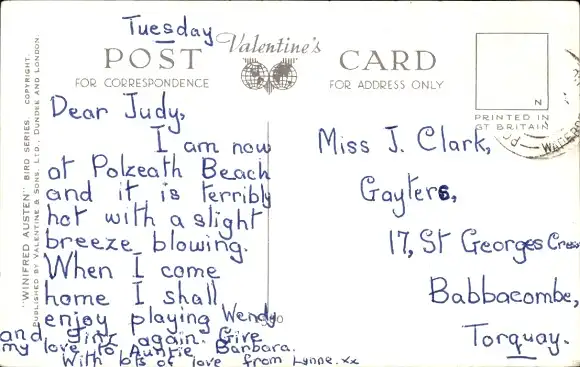 Tuesday
Valentine's
POST CARD
FOR CORRESPONDENCE
FOR ADDRESS ONLY
N
PRINTED IN
GT BRITAIN
"WINIFRED AUSTEN" BIRD SERIES. COPYRIGHT.
PUBLISHED BY VALENTINE & SONS, LTD., DUNDEE AND LONDON.
Dear Judy,
I am now
at Polzeath Beach
and it is terribly
hot with a slight
breeze blowing.
When I come
home I shall
enjoy playing Wendy
and again. Give
my love to Auntie Barbara.
With lots of love from Lynne. xx
Miss J. Clark,
Gayters,
17, St Georges Cres
Babbacombe,
Torquay.